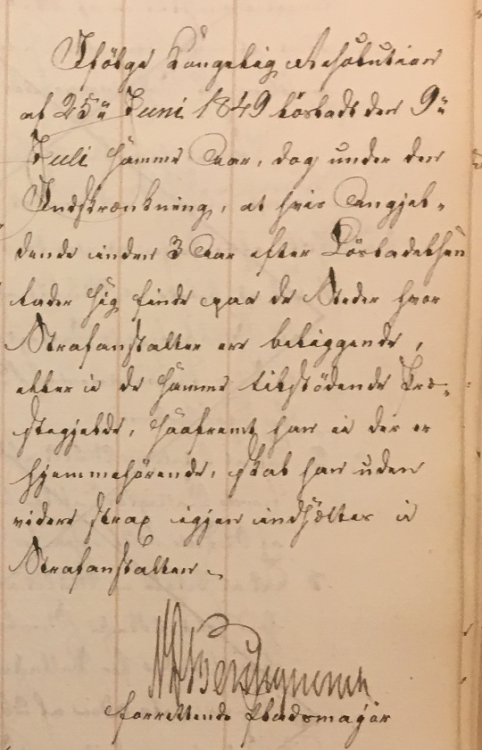 Ifølge Kongelig Resolution
af 25de Juni 1849 løsladt den 9de
Juli samme Aar, dog under den
Indskrænkning, at hvis Angjel-
dende inden 3 Aar efter Løsladelsen
lader sig finde paa de Steder hvor
Strafanstalter ere beliggende,
eller i de samme tilstødende Præ-
stegjelde, saafremt han ei der er
hjemmehørende, skal han uden
videre strax igjen indsættes i
Strafanstalten.
forrettende Pladsmajor